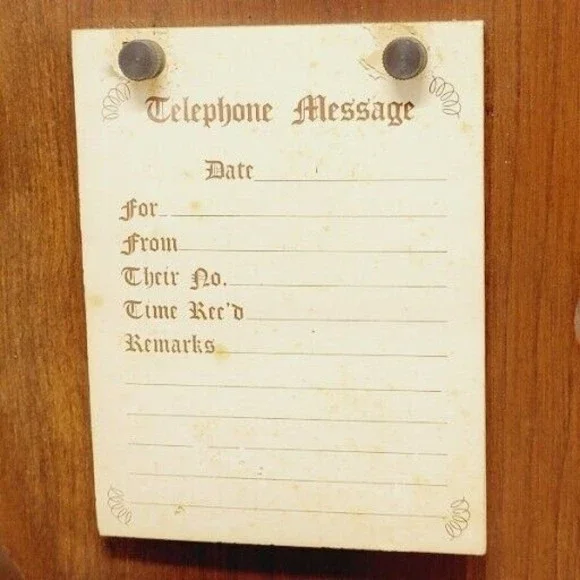 Telephone Message
Date
For
From
Their No.
Time Rec'd
Remarks